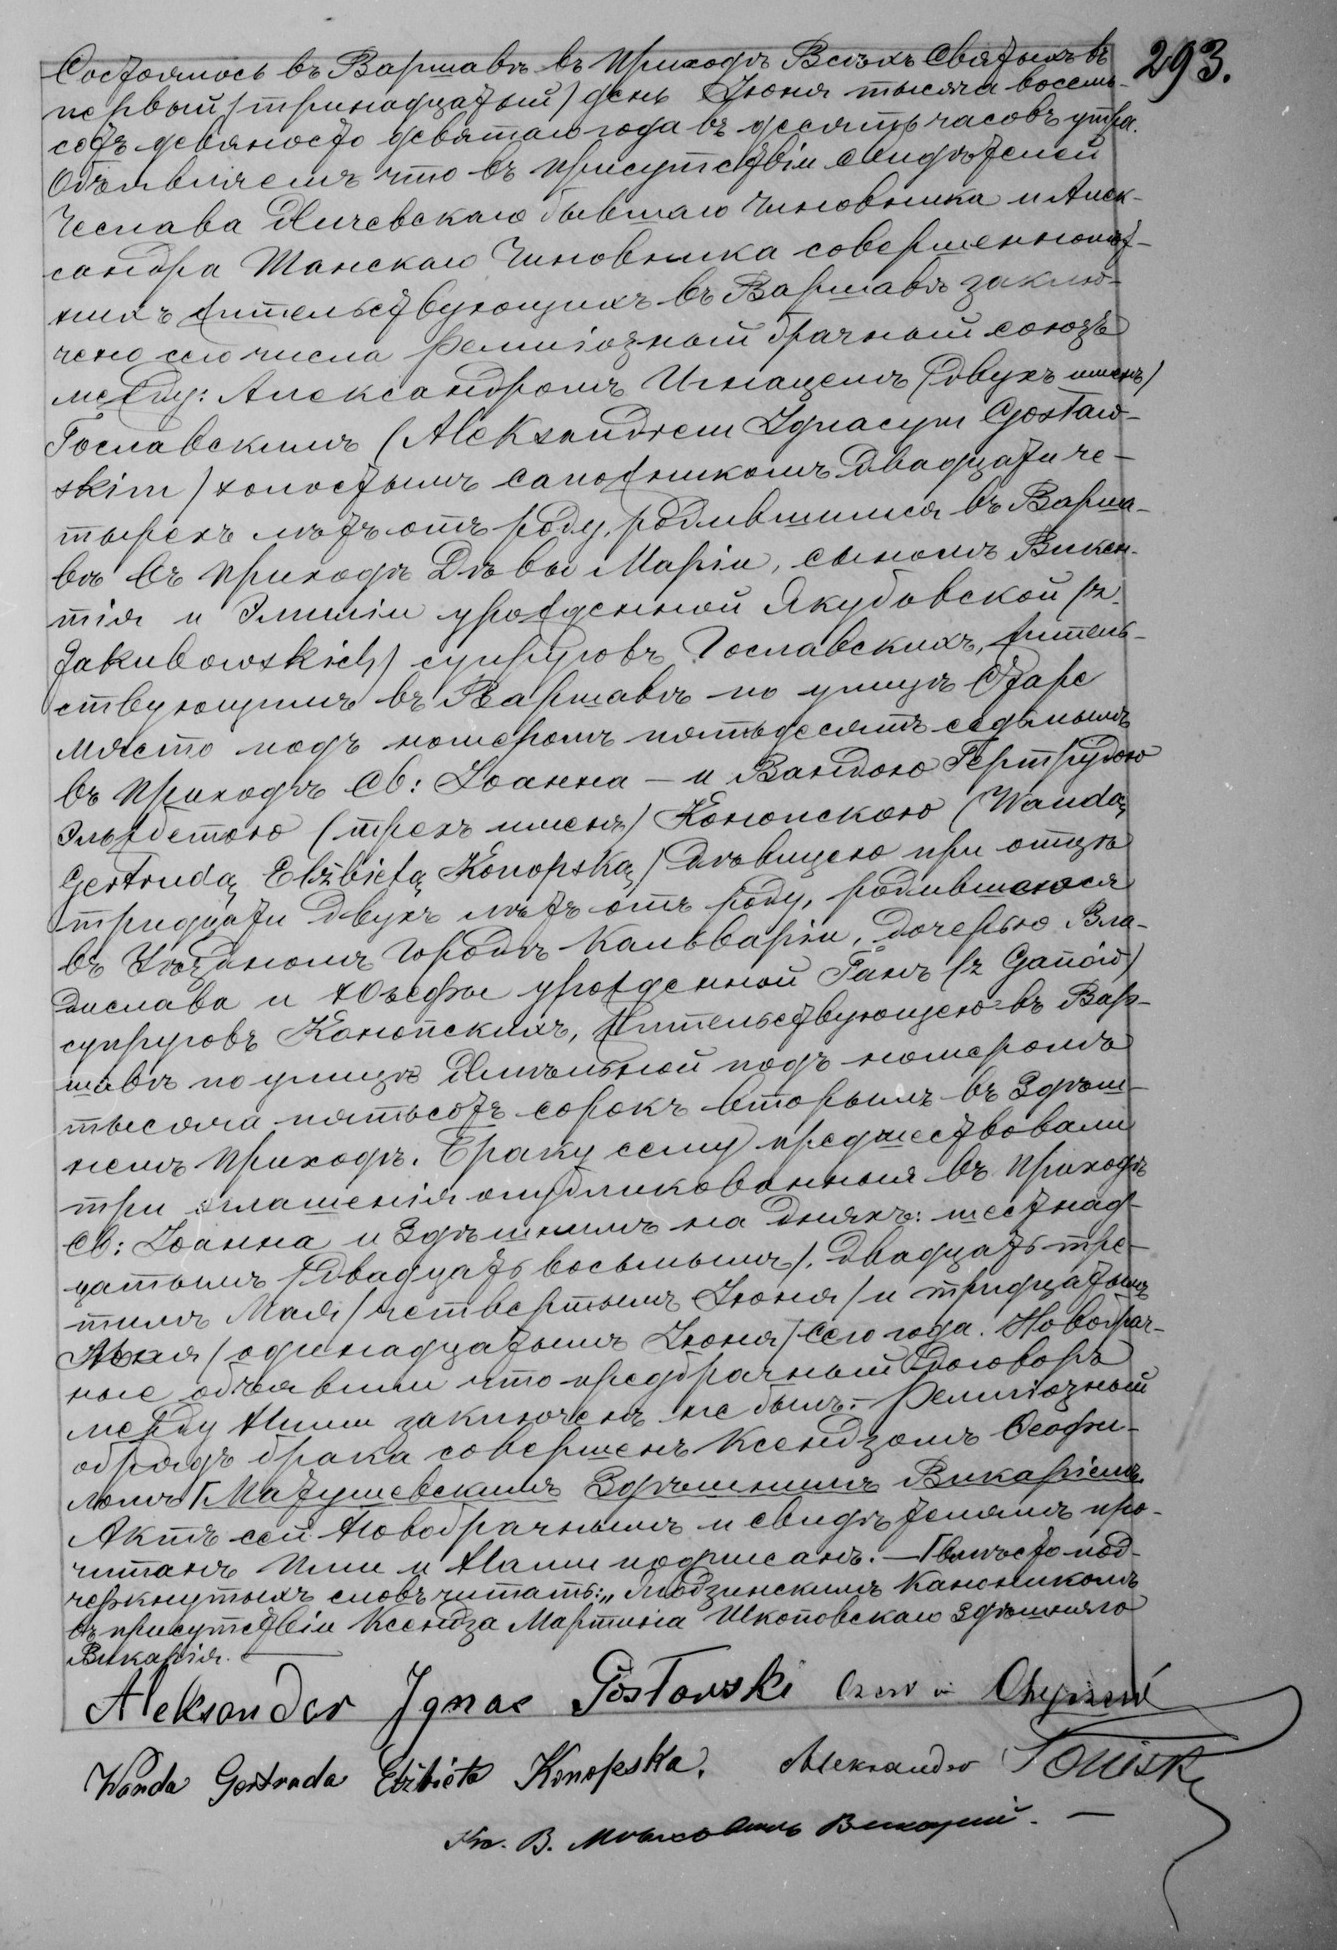 293.
Состоялось въ Варшавѣ въ приходѣ Всѣхъ Святыхъ въ
первый /тринадцатый/ день Іюня тысяча восемь-
сотъ девяносто девятаго года въ десять часовъ утра.
Объявляемъ что въ присутствіи свидѣтелей
Чеслава бывшаго чиновника и Алек-
сандра Чиновника совершеннолѣт-
нихъ жительствующихъ въ Варшавѣ заклю-
чено сего числа религіозный брачный союзъ
между: Александромъ Игнацемъ /двухъ именъ/
Гославскимъ /Aleksandrem Ignacym Gosław-
skim/ холостымъ сапожникомъ двадцати че-
тырехъ лѣтъ отъ роду, родившимся въ Варша-
вѣ въ приходѣ Дѣвы Маріи, сыномъ Викен-
тія и Эмиліи урожденной Якубовской /z
Jakubowskich/ супруговъ Гославскихъ, житель-
ствующимъ въ Варшавѣ по улицѣ Старе
Място подъ номеромъ пятьдесятъ седьмымъ
въ приходѣ Св: Іоанна – и Вандою Гертрудою
Эльжбетою /трехъ именъ/ Конопскою /Wandą
Gertrudą Elżbietą Konopską/ дѣвицею при отцѣ
тридцати двухъ лѣтъ отъ роду, родившеюся
въ Уѣздномъ Городѣ Кальваріи, дочерью Вла-
дислава и Юзефы урожденной Ганъ /z Ganów/
супруговъ Конопскихъ, жительствующею въ Вар-
шавѣ по улицѣ подъ номеромъ
тысяча пятьсотъ сорокъ вторымъ въ здѣш-
немъ приходѣ. Браку сему предшествовали
три оглашенія опубликованныя въ приходѣ
Св: Іоанна и Здѣшнимъ на дняхъ: шестнад-
цатымъ /двадцать восьмымъ/, двадцать тре-
тимъ Мая /четвертымъ Іюня/ и тридцатымъ
Мая /одинадцатымъ Іюня/ сего года. Новобрач-
ные объявили что предбрачный договоръ
между Ними заключенъ не былъ. – Религіозный
обрядъ брака совершенъ Ксендзомъ Ѳеофи-
ломъ Матушевскимъ Здѣшнимъ Викаріемъ.
Актъ сей Новобрачнымъ и свидѣтелямъ про-
читанъ Ими и Нами подписанъ. – вмѣсто под-
черкнутыхъ словъ читать: „ Каноникомъ
въ присутствіи Ксендза Мартина здѣшняго
Викарія.
Aleksander Ignac Gosławski
Wanda Gertruda Elżbieta Konopska. Aleksander
Кс. В. Викарій. –